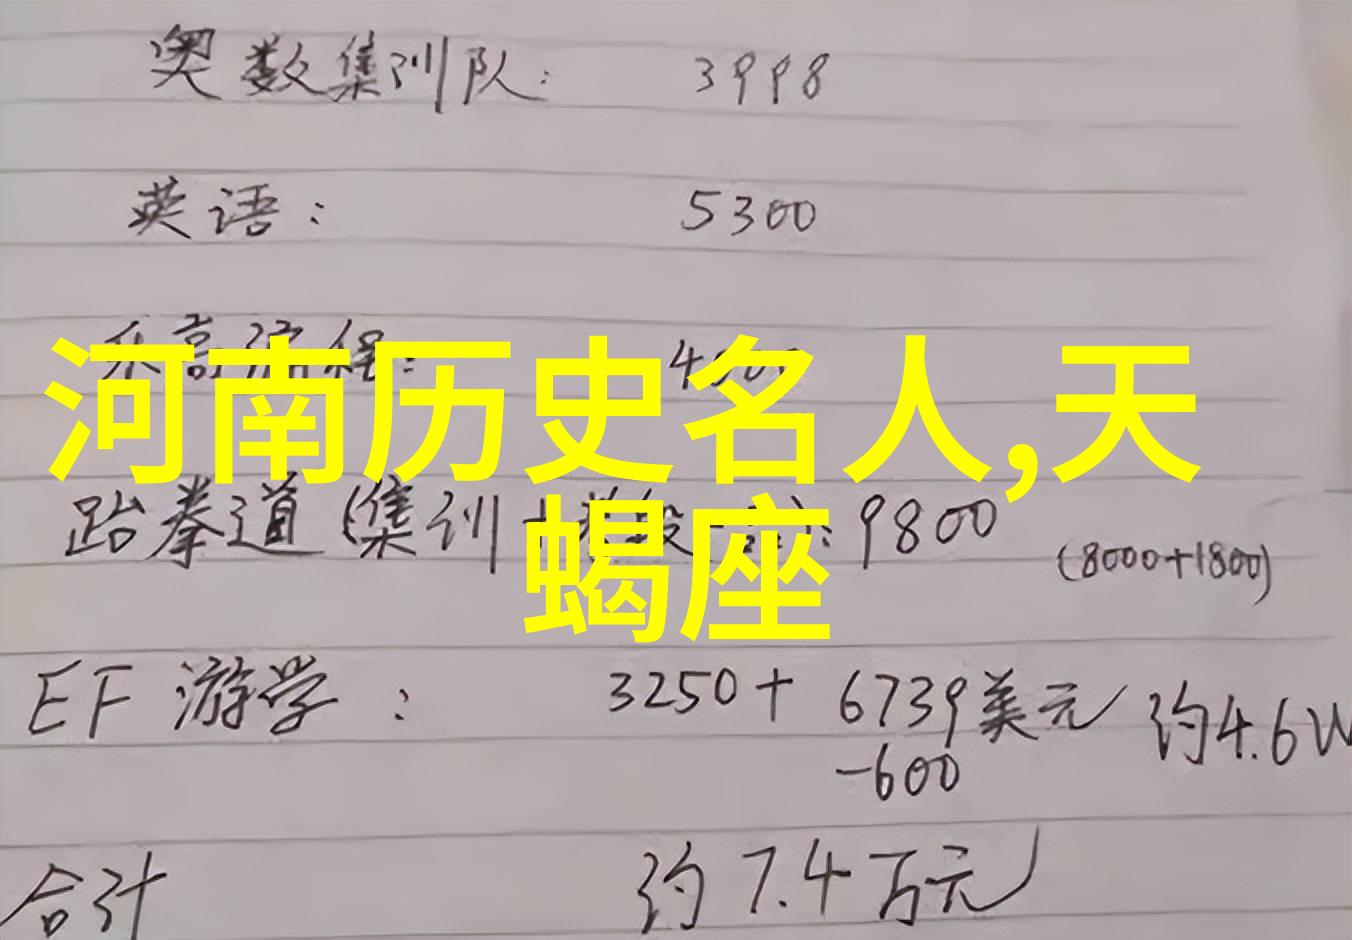 奥数集训队: 3998
英语: 5300
乐高编程:
河南历史名人,天
跆拳道(集训+ 9800
(8000+1800)
蝎座
EF 游学: 3250+ 6739美元 约4.6W
-600
合计 约 7.4万元